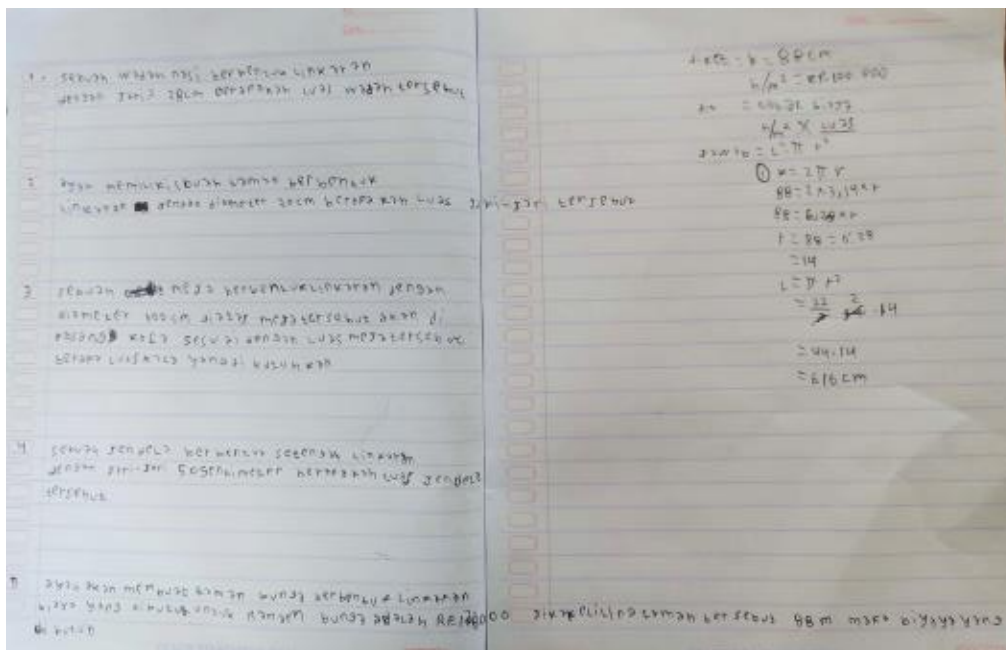 1. sebuah wadah nasi berbentuk Lingkaran
dengan Jari² 28cm berapakah Luas wadah tersebut
2 ayah memiliki sebuah taman berbentuk
Lingkaran dengan diameter 20cm berapakah Luas Jari-jari tersebut
3 sebuah meja berbentuk Lingkaran dengan
diameter 100cm diatas meja tersebut akan di
pasang kaca sesuai dengan Luas meja tersebut
berapa Luas kaca yang di butuhkan
4 sebuah Jendela berbentuk setengah Lingkaran
dengan Jari-Jari 50 sentimeter berapakah Luas Jendela
tersebut
5 ayah akan membuat taman bunga berbentuk Lingkaran
biaya yang dibutuhkan untuk bunga adalah RP 000 Jika keliling taman tersebut 88 m maka biyaya yang
di butuh
= 88cm
h/m² = RP.100.000
= L = π r²
① K = 2 π r
88 = 2 × 3,14 × r
88 = 6,28 × r
r = 88 ÷ 6.28
= 14
L = π r²
= 22/7 14 . 14
= 44.14
= 616 cm